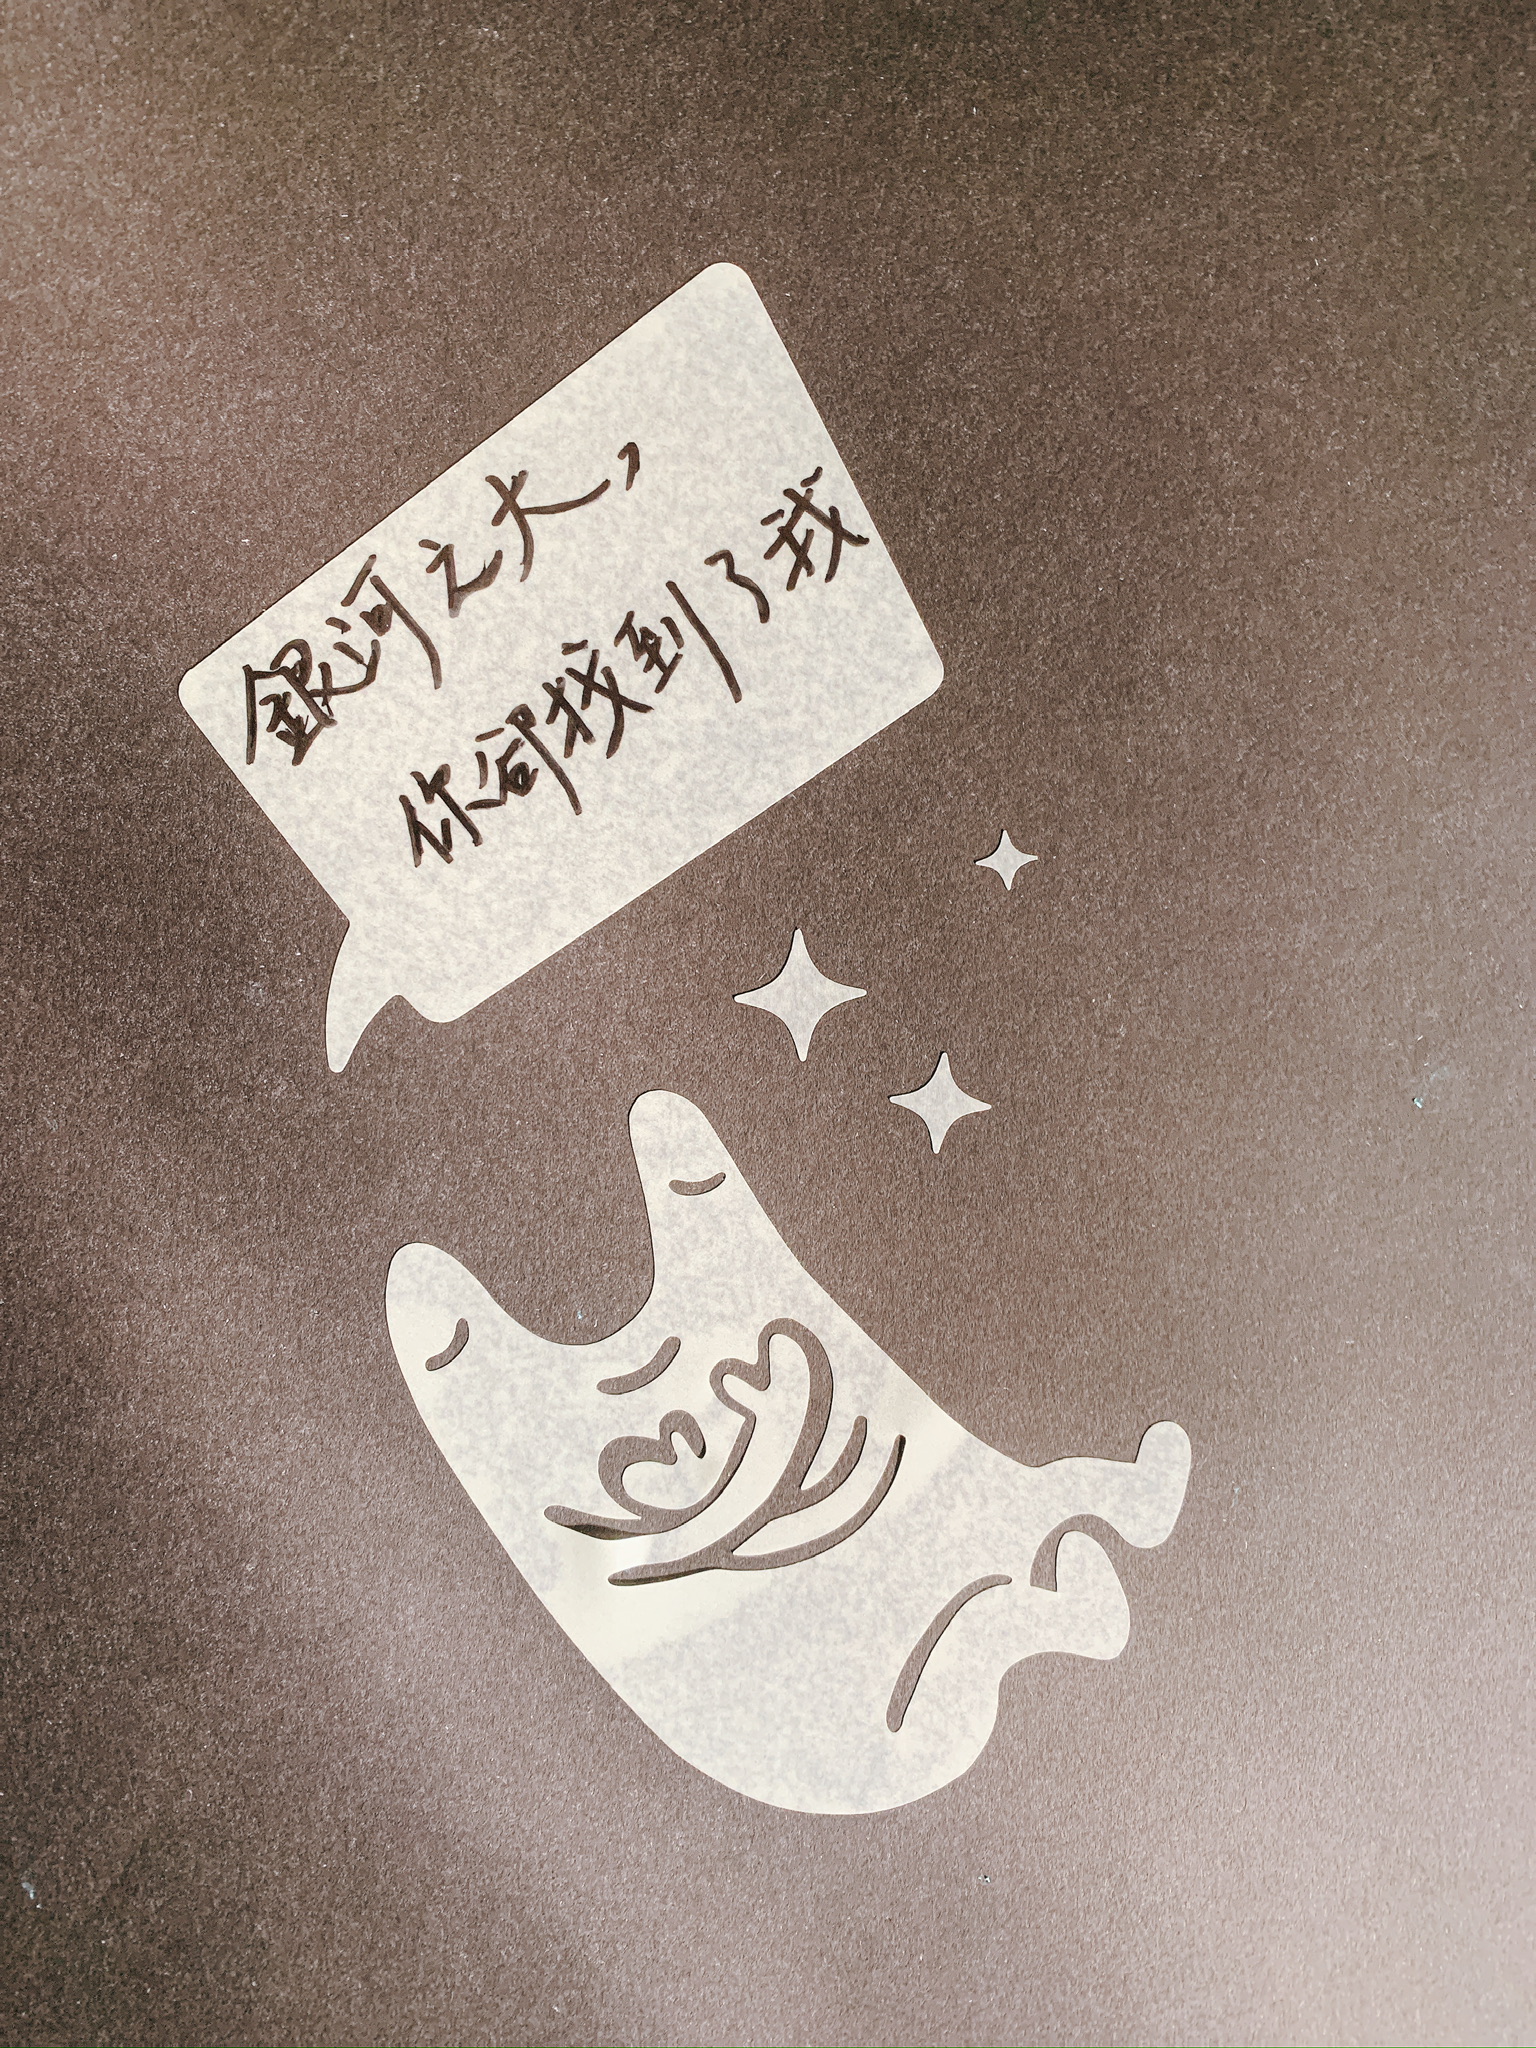 銀河之大，
你卻找到了我